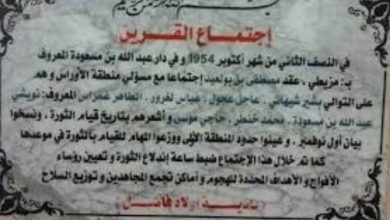 بسم الله الرحمن الرحيم
إجتماع القرين
في النصف الثاني من شهر أكتوبر 1954 و في دار عبد الله بن مسعودة المعروف
بـ: مزيطي، عقد مصطفى بن بولعيد إجتماعا مع مسؤولي منطقة الأوراس و هم
على التوالي بشير شيهاني، عاجل عجول، عباس لغرور، الطاهر المعروف: نويشي
عبد الله بن مسعودة، محمد خنطر، حاجي موسى و أشعرهم بتاريخ قيام الثورة، ونسخوا
بيان أول نوفمبر، و عينوا حدود المنطقة الأولى ووزعوا المهام للقيام بالثورة في موعدها
كما تم خلال هذا الإجتماع ضبط ساعة إندلاع الثورة و تعيين رؤساء
الأفواج و الأهداف المحددة للهجوم و أماكن تجمع المجاهدين و توزيع السلاح
بلدية أولاد فاضل